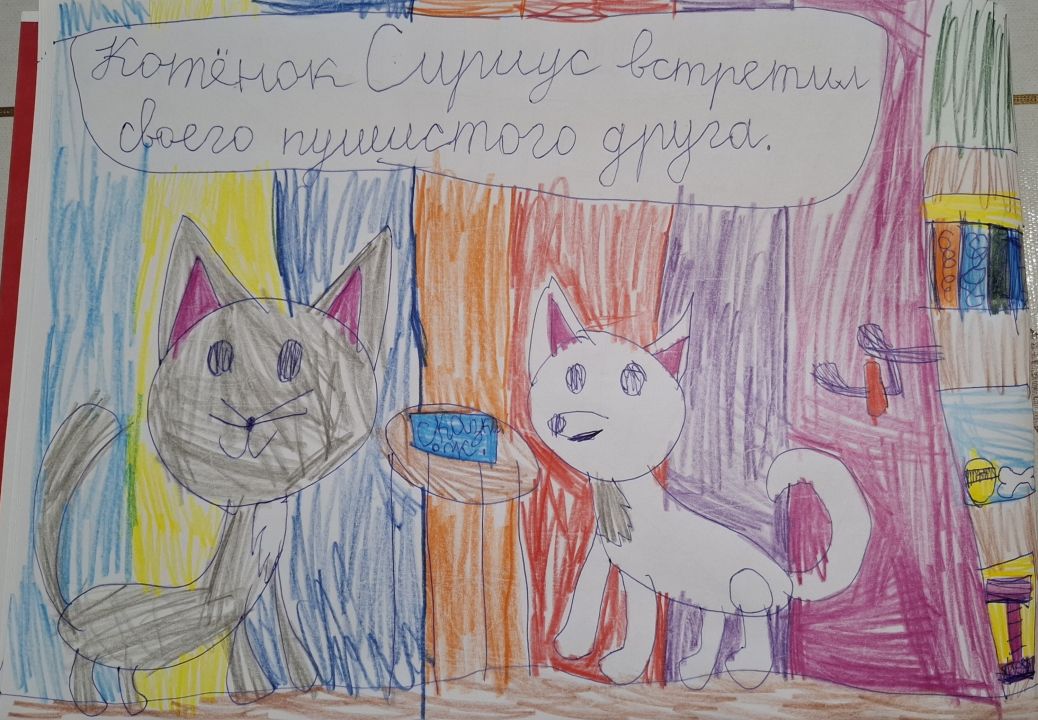 Котёнок Сириус встретил
своего пушистого друга.